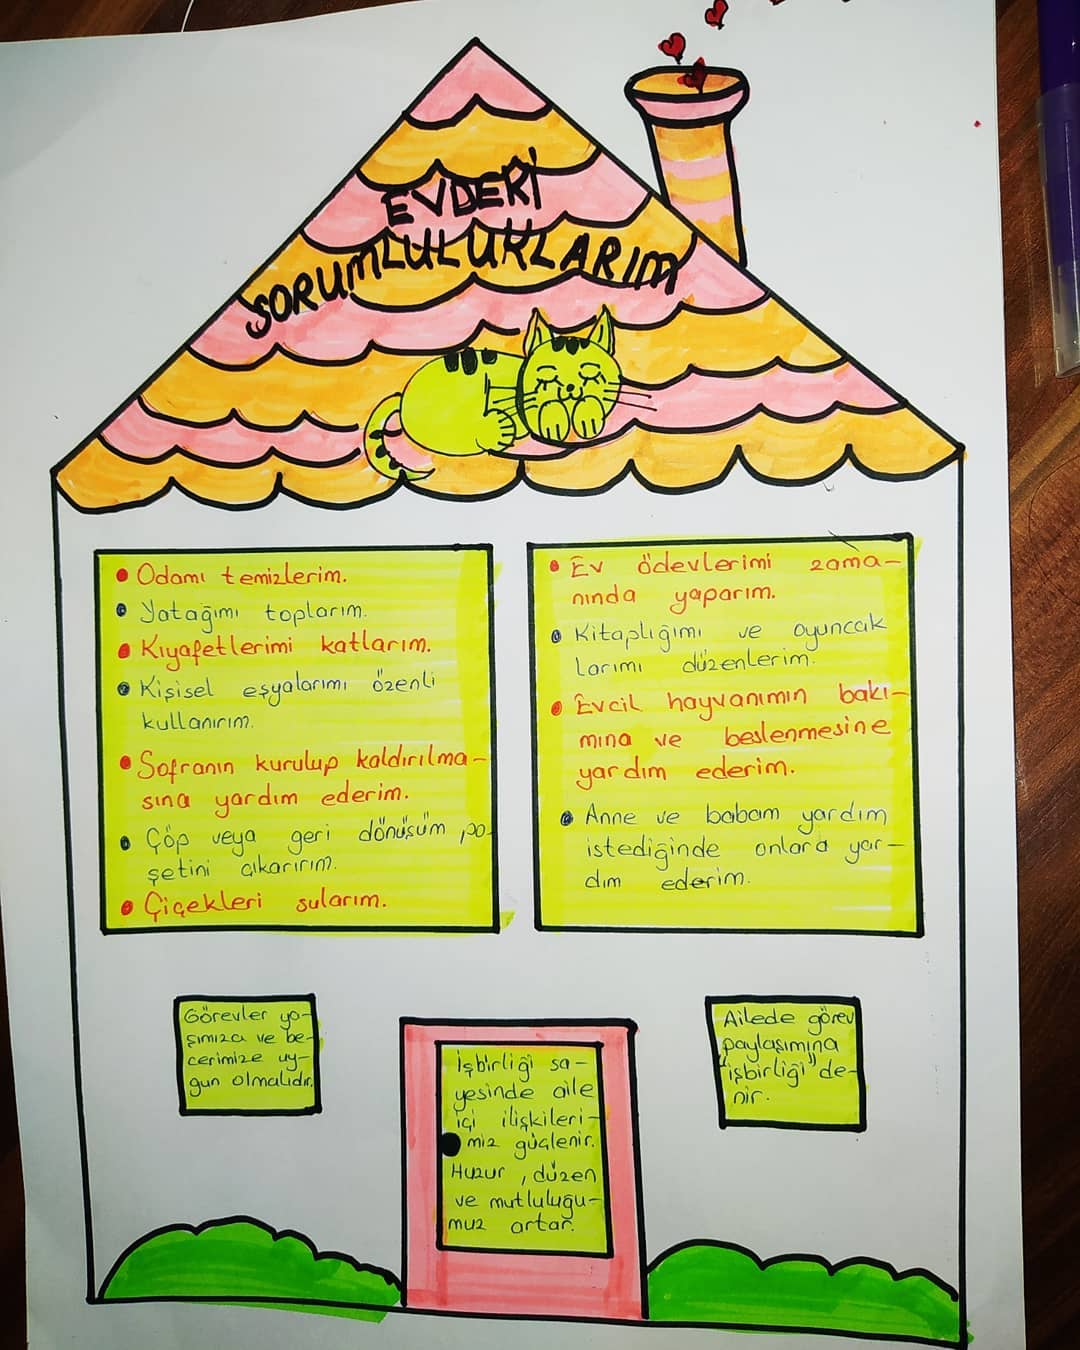 EVDEKİ
SORUMLULUKLARIM
• Odamı temizlerim.
• Yatağımı toplarım.
• Kıyafetlerimi katlarım.
• Kişisel eşyalarımı özenli
kullanırım.
• Sofranın kurulup kaldırılma-
sına yardım ederim.
• Çöp veya geri dönüşüm po-
şetini çıkarırım.
• Çiçekleri sularım.
• Ev ödevlerimi zama-
nında yaparım.
• Kitaplığımı ve oyuncak
larımı düzenlerim.
• Evcil hayvanımın bakı-
mına ve beslenmesine
yardım ederim.
• Anne ve babam yardım
istediğinde onlara yar-
dım ederim.
Görevler ya-
şımıza ve be-
cerimize uy-
gun olmalıdır.
İşbirliği sa-
yesinde aile
içi ilişkileri-
miz güçlenir.
Huzur, düzen
ve mutluluğu-
muz artar.
Ailede görev
paylaşımına
"işbirliği" de-
nir.